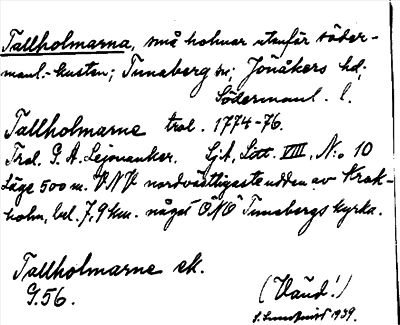 Tallholmarna, små holmar utanför söder-
manl.-kusten; Tunaberg sn; Jönåkers hd;
Södermanl. l.
Tallholmarne trol. 1774-76.
Trol. G. A. Lejonanker. SjA, Sött. VIII, N:o 10
Läge 500 m. VNV nordvästligaste udden av Krak-
holm, bel. 7,9 km. något ÖNÖ Tunabergs kyrka.
Tallholmarne ek.
G.56.
(Vänd!)
1939.